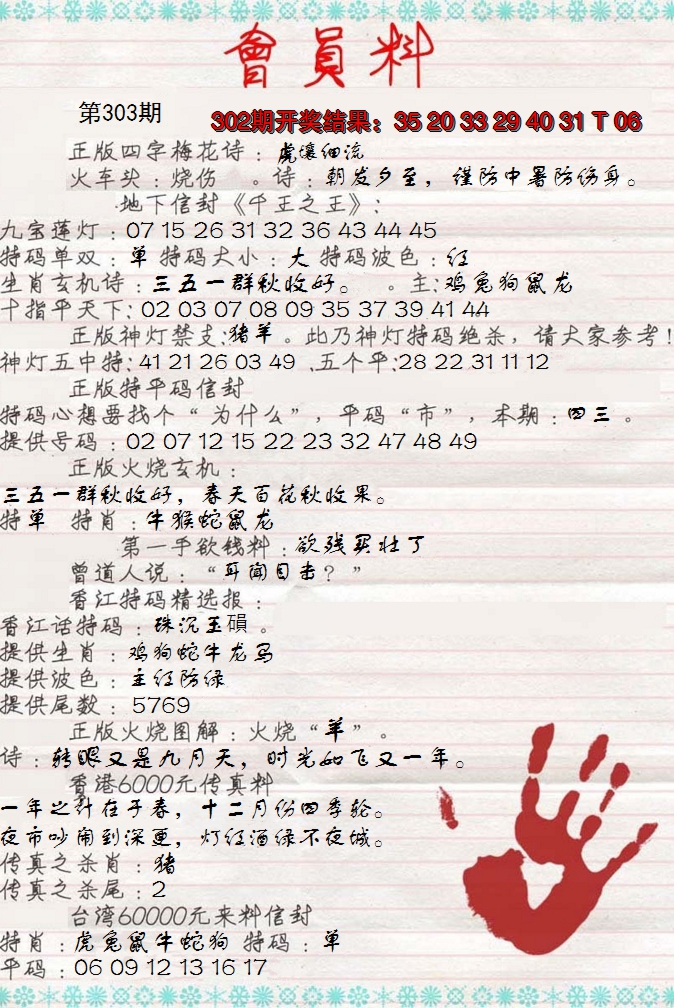 會員料
第303期
302期开奖结果：35 20 33 29 40 31 T 06
正版四字梅花诗：虎壤细流
火车头：烧伤 。诗：朝发夕至，谨防中暑防伤身。
地下信封《千王之王》：
九宝莲灯：07 15 26 31 32 36 43 44 45
特码单双：单 特码大小：大 特码波色：红
生肖玄机诗：三五一群秋收好。 。主:鸡兔狗鼠龙
十指平天下:02 03 07 08 09 35 37 39 41 44
正版神灯禁支:猪羊。此乃神灯特码绝杀，请大家参考!
神灯五中特:41 21 26 03 49 .五个平:28 22 31 11 12
正版特平码信封
特码心想要找个“为什么”，平码“市”，本期：四三。
提供号码：02 07 12 15 22 23 32 47 48 49
正版火烧玄机：
三五一群秋收好，春天百花秋收果。
特单 特肖：牛猴蛇鼠龙
第一手欲钱料：欲残买壮丁
曾道人说：“耳闻目击？”
香江特码精选报：
香江话特码：珠沉玉磒。
提供生肖：鸡狗蛇牛龙马
提供波色：主红防绿
提供尾数：5769
正版火烧图解：火烧“羊”。
诗：转眼又是九月天，时光如飞又一年。
香港6000元传真料
一年之计在于春，十二月份四季轮。
夜市吵闹到深更，灯红酒绿不夜城。
传真之杀肖：猪
传真之杀尾：2
台湾60000元来料信封
特肖：虎兔鼠牛蛇狗 特码：单
平码：06 09 12 13 16 17